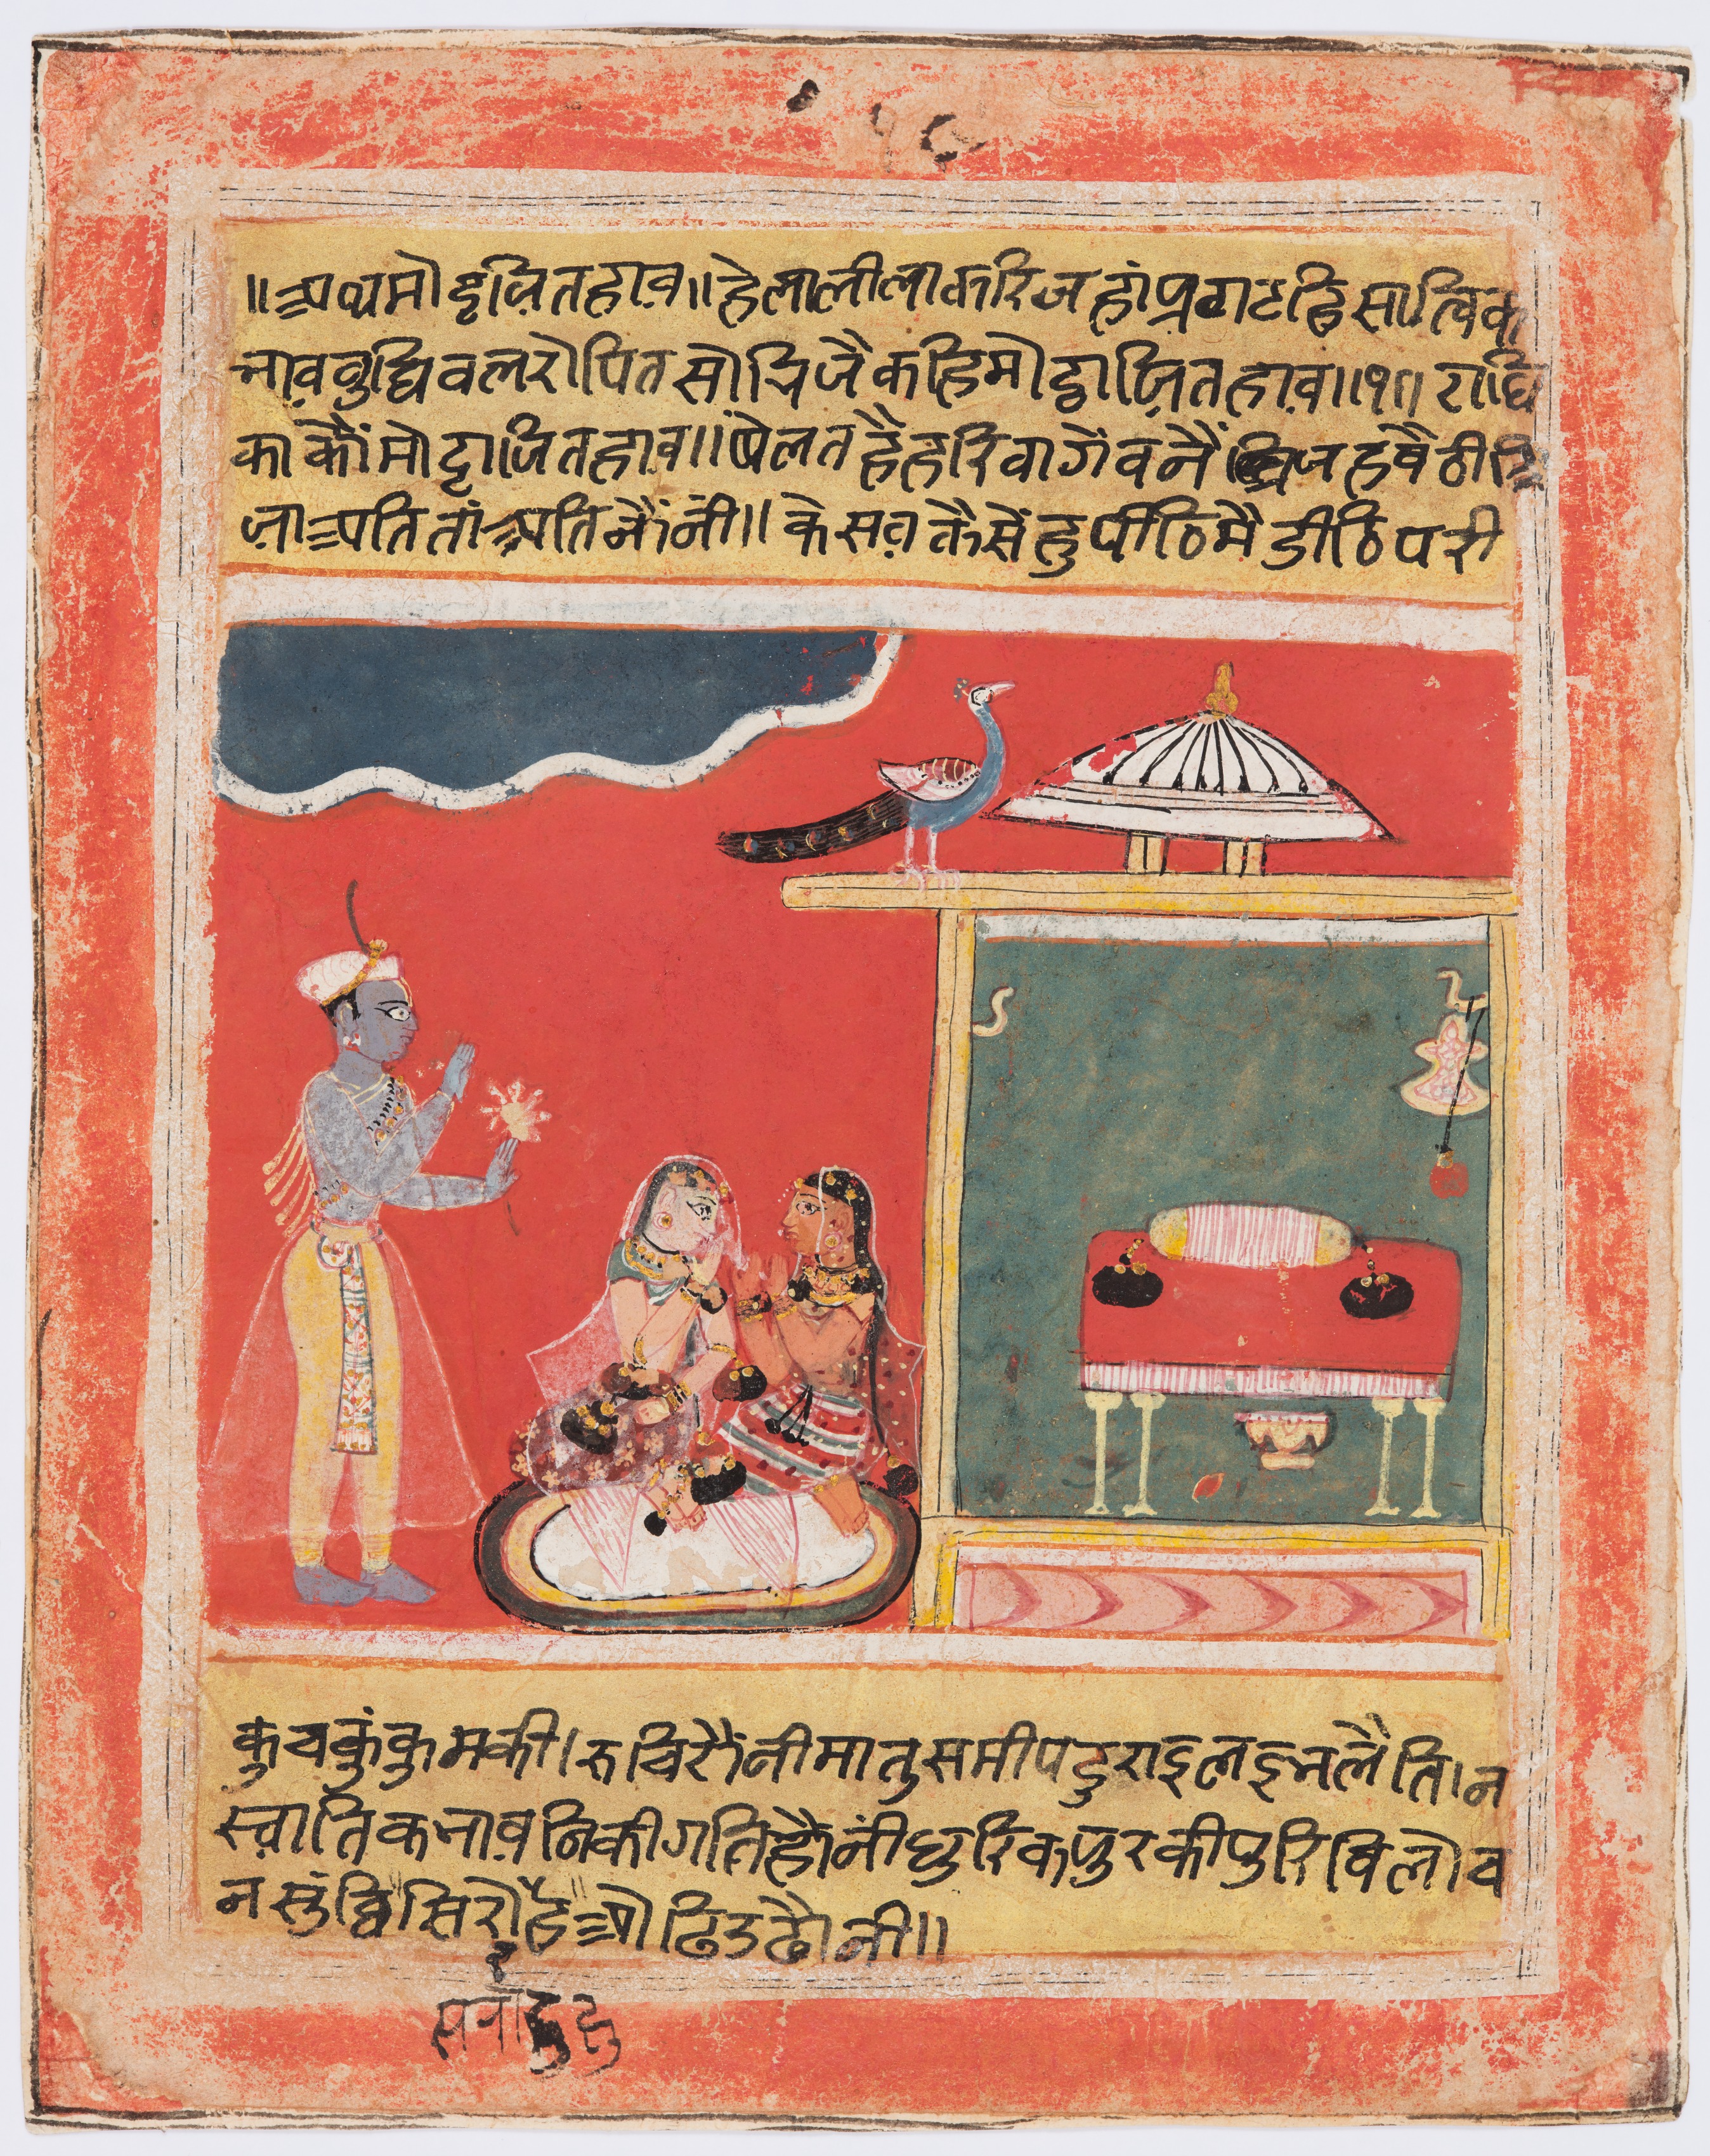 १८
॥अथमोट्टाञितहाव॥हेलालीलाकरिजहांप्रगटहिसात्विक
भावबुधिबलरोपितसोभिजैकहिमोट्टाञितहाव॥१॥राधि
काकौंमोट्टाजितहाव॥षेलतहैहरिवागेंवनैं जहवैठीप्रि
याअतितांअतिलौंनी॥केसवकैसेंहुपीठिमैडीठिपरी
कुचकुंकुमकी।रुचिरौंनीमातुसमीपदुराइलइभलैति।न
स्वातिकभावनिकीगतिहौंनीधुरिकपुरकीपुरिविलोच
नसुंघिसिरोहैओढिउढौनी॥